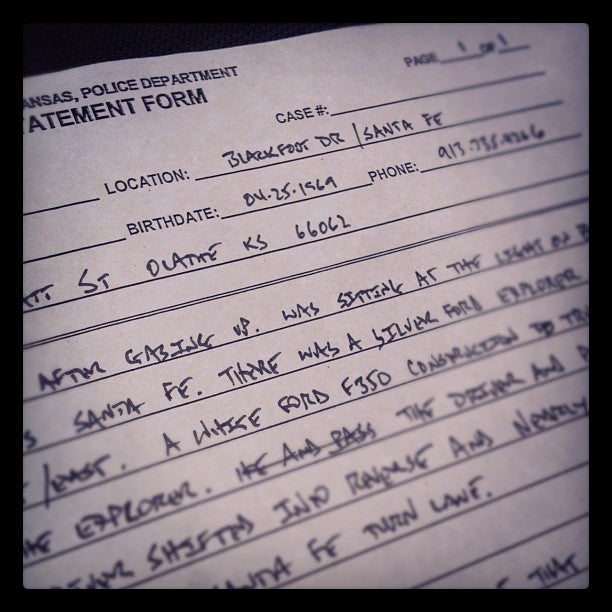 ANSAS, POLICE DEPARTMENT
ATEMENT FORM
PAGE 1 OF 1
CASE #:
LOCATION: BLACKFOOT DR / SANTA FE
BIRTHDATE: 04-25-1969 PHONE: 913
ST OLATHE KS 66062
AFTER GASSING UP. WAS SITTING AT THE LIGHT ON
SANTA FE. THERE WAS A SILVER FORD EXPLORER
/EAST. A WHITE FORD F350 CONSTRUCTION
EXPLORER. HE AND PASS THE DRIVER AND
SHIFTED INTO REVERSE AND NEARLY
SANTA FE TURN LANE.
THAT